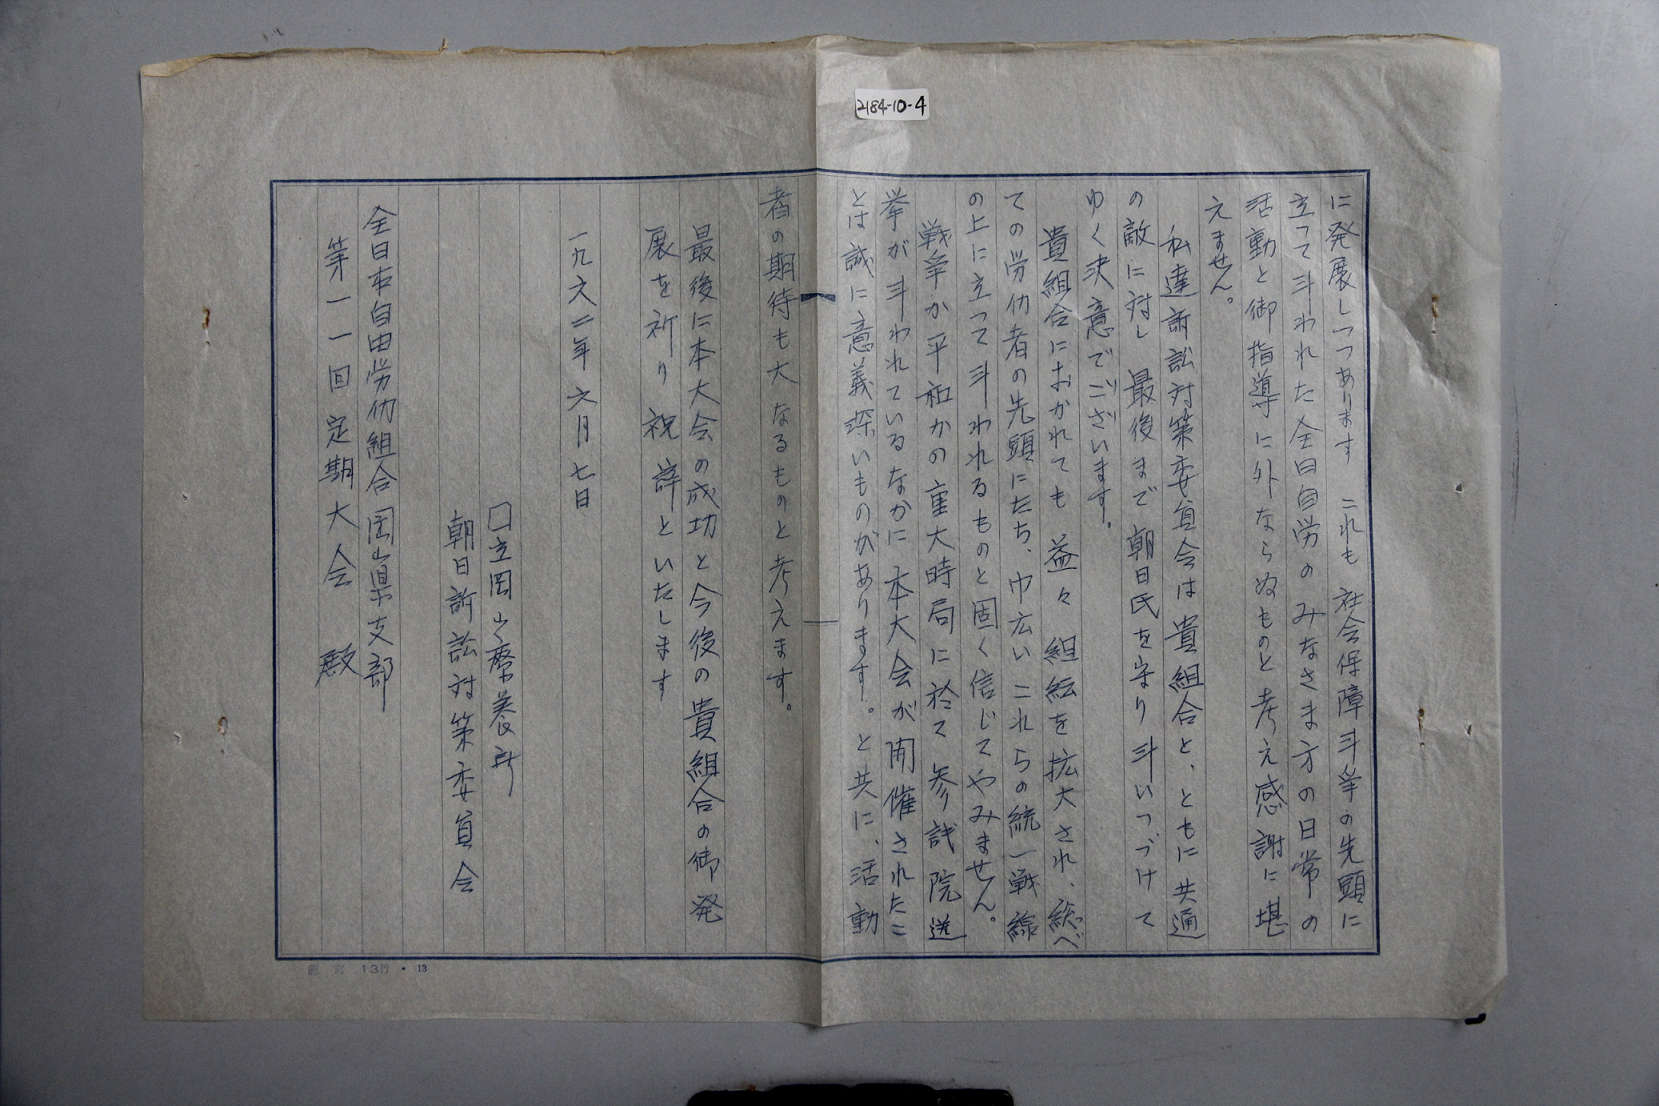 2184-10-4
に発展しつつあります これも 社会保障斗争の先頭に
立って斗われた全日自労のみなさま方の日常の
活動と御指導に外ならぬものと考え感謝に堪
えません。
私達訴訟対策委員会は貴組合と、ともに共通
の敵に対し 最後まで 朝日氏を守り 斗いつづけて
ゆく決意でございます。
貴組合におかれても 益々 組織を拡大され、総べ
ての労仂者の先頭にたち、巾広い これらの統一戦線
の上に立って斗われるものと固く信じてやみません。
戦争か平和かの重大時局に於て 参議院選
挙が斗われているなかに 本大会が開催されたこ
とは誠に意義深いものがあります。と共に、活動
者の期待も大なるものと考えます。
最後に本大会の成功と今後の貴組合の御発
展を祈り祝辞といたします
一九六二年六月七日
口立岡山療養所
朝日訴訟対策委員会
全日本自由労仂組合岡山県支部
第一一回定期大会 殿
13行・13